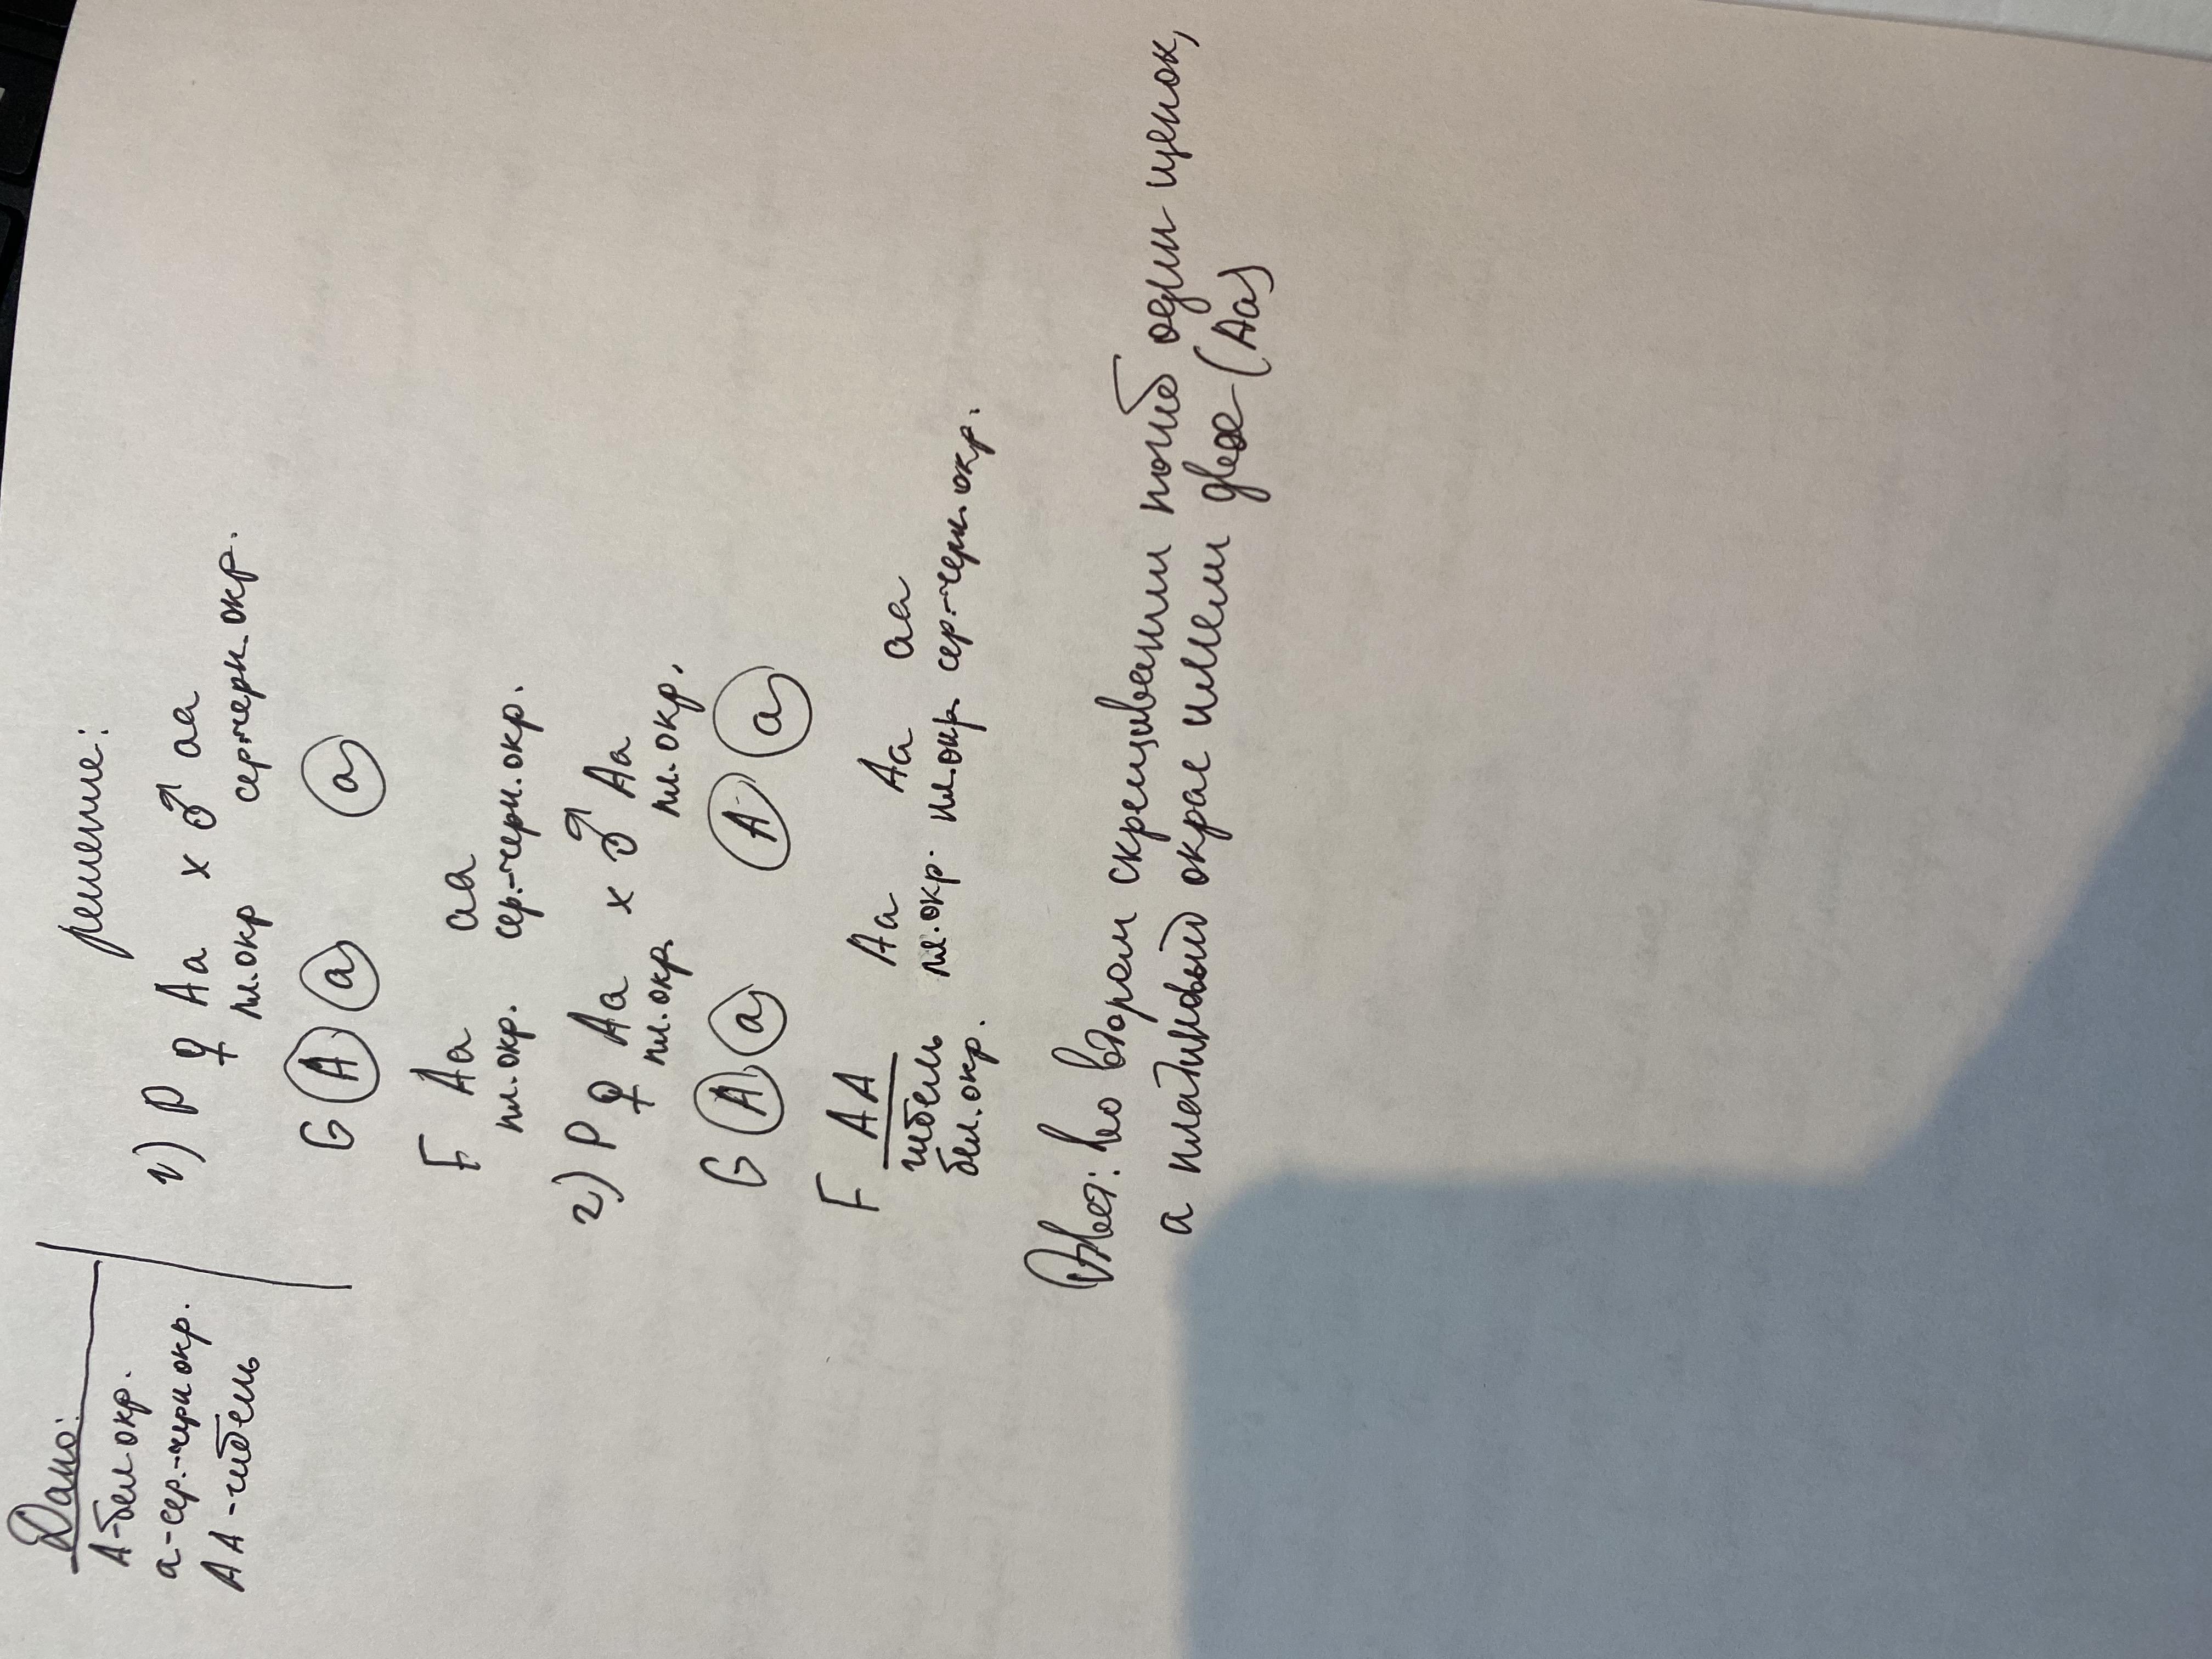 Дано:
А-бел окр.
а-сер.-черн окр.
АА-гибель
решение:
1) Р ♀ Аа х ♂ аа
пл.окр сер-черн.окр.
G А а а
F Аа аа
пл.окр. сер.-черн.окр.
2) Р ♀ Аа х ♂ Аа
пл.окр. пл.окр.
G А а А а
F АА Аа Аа аа
гибель пл.окр. пл.окр. сер.-черн.окр.
бел.окр.
Ответ: во втором скрещивании погиб один щенок,
а платиновый окрас имели двое (Аа)